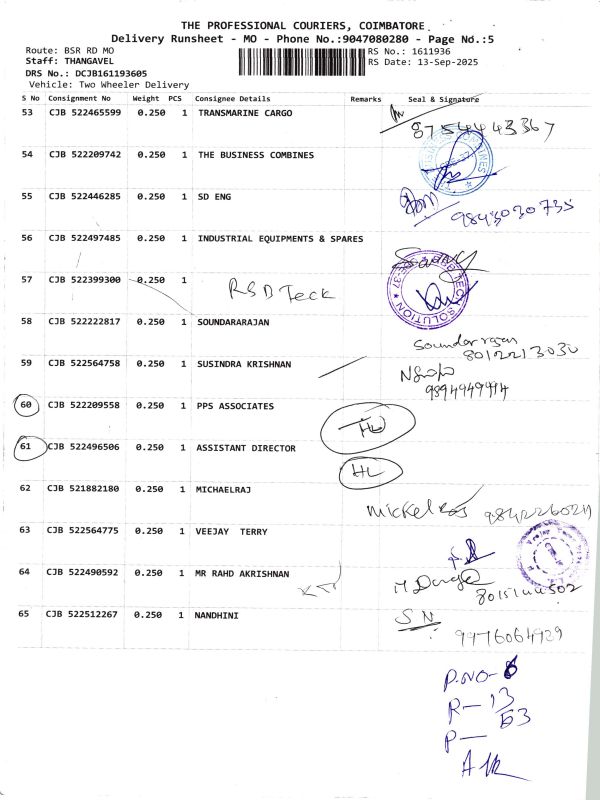 THE PROFESSIONAL COURIERS, COIMBATORE
Delivery Runsheet - MO - Phone No.:9047080280 - Page No.:5
Route: BSR RD MO
Staff: THANGAVEL
DRS No.: DCJB161193605
Vehicle: Two Wheeler Delivery
RS No.: 1611936
RS Date: 13-Sep-2025
S No Consignment No Weight PCS Consignee Details Remarks Seal & Signature
53 CJB 522465599 0.250 1 TRANSMARINE CARGO
8754443367
54 CJB 522209742 0.250 1 THE BUSINESS COMBINES
55 CJB 522446285 0.250 1 SD ENG
9843030735
56 CJB 522497485 0.250 1 INDUSTRIAL EQUIPMENTS & SPARES
57 CJB 522399300 0.250 1 RSD Teck
58 CJB 522222817 0.250 1 SOUNDARARAJAN
Soundarrajan
8012213030
59 CJB 522564758 0.250 1 SUSINDRA KRISHNAN
9894949494
60 CJB 522209558 0.250 1 PPS ASSOCIATES
HL
61 CJB 522496506 0.250 1 ASSISTANT DIRECTOR
HL
62 CJB 521882180 0.250 1 MICHAELRAJ
63 CJB 522564775 0.250 1 VEEJAY TERRY
64 CJB 522490592 0.250 1 MR RAHD AKRISHNAN
65 CJB 522512267 0.250 1 NANDHINI
S N
9976064929
P.NO-
R- 13
63
P-